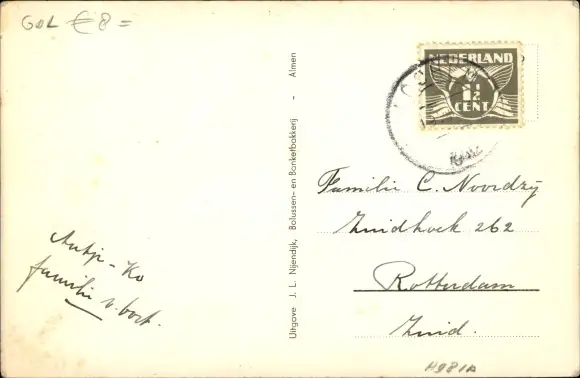 GOL € 8 =
NEDERLAND
1½
CENT
Uitgave J. L. Nijendijk, Bolussen- en Banketbakkerij - Almen
Familie C. Noordzij
Zuidhoek 262
Rotterdam
Zuid.
Antje - Ko
familie v. bort.
H981A